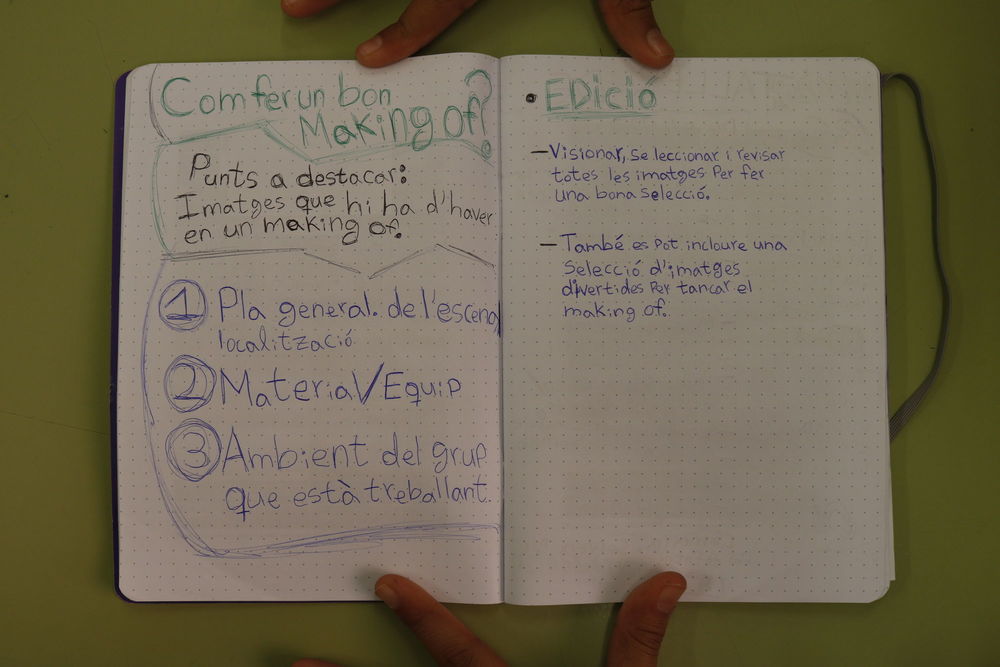 Com fer un bon
Making of?
Punts a destacar:
Imatges que hi ha d'haver
en un making of.
1 Pla general. de l'escena/
localització
2 Material/Equip
3 Ambient del grup
que està treballant.
• EDició
— Visionar, Seleccionar i revisar
totes les imatges Per fer
una bona Selecció.
— També es Pot incloure una
Selecció d'imatges
divertides Per tancar el
making of.